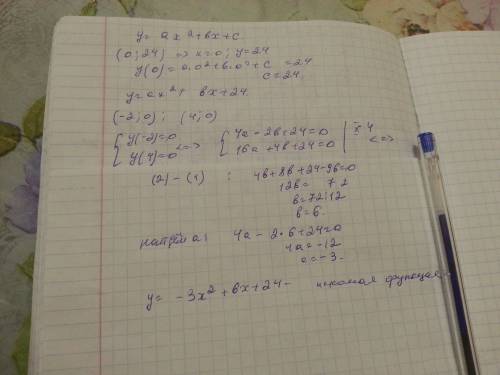 y = ax² + bx + c
(0; 24) => x=0; y=24
y(0) = a·0² + b·0 + c = 24
c = 24.
y = ax² + bx + 24
(-2; 0); (4; 0)
{ y(-2)=0 <=> { 4a - 2b + 24 = 0 | x 4
{ y(4)=0 { 16a + 4b + 24 = 0 <=>
(2) - (1) : 4b + 8b + 24 - 96 = 0
12b = 72
b = 72:12
b = 6.
найдём a: 4a - 2·6 + 24 = 0
4a = -12
a = -3.
y = -3x² + 6x + 24 - искомая функция